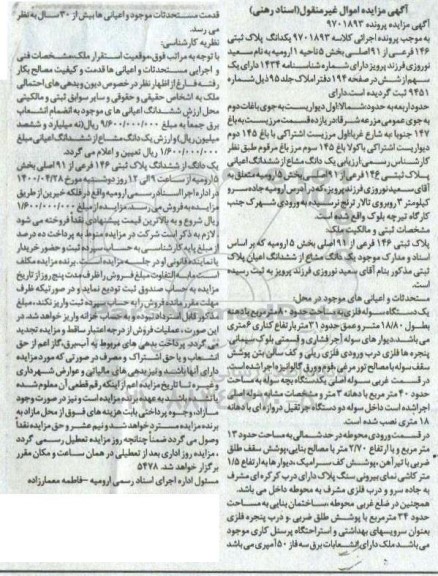 آگهی مزایده اموال غیر منقول(اسناد رهنی)
آگهی مزایده پرونده ۹۷۰۱۸۹۳
به موجب پرونده اجرائی کلاسه ۹۷۰۱۸۹۳ یکدانگ پلاک ثبتی
۱۴۶ فرعی از ۹۱ اصلی بخش ۵ ناحیه ۱ ارومیه به نام سعید
نوروزی فرزند پرویز دارای شماره شناسنامه ۱۴۳۴ دارای یک
سهم از شش در صفحه ۱۹۴ دفتر املاک جلد ۹۵ ذیل شماره
۹۴۵۱ ثبت گردیده است.دارای
حدود اربعه به حدود: شمالا اول دیواریست به جوی باغات دوم
به جوی عمومی مزرعه شرقا در یازده قسمت مرزیست به باغ
۱۴۷ جنوبا به شارع غربا اول مرزیست اشتراکی با باغ ۱۴۵ دوم
دیواریست اشتراکی با کولا باغ ۱۴۵ سوم مرز باغ مرقوم طبق نظر
کارشناس رسمی:ارزیابی یک دانگ مشاع از ششدانگ اعیانی
پلاک ثبتی ۱۴۶ فرعی از ۹۱ اصلی بخش ۵ ارومیه متعلق به
آقای سعید نوروزی فرزند پرویز،که در آدرس ارومیه جاده سرو
کیلومتر ۳ روبروی تالار ترنج نرسیده به ورودی شهرک جنب
کارگاه تیرچه بلوک واقع شده است.
مشخصات ثبتی و مالکیت ملک:
پلاک ثبتی ۱۴۶ فرعی از ۹۱ اصلی بخش ۵ ارومیه که بر اساس
اسناد و مدارک موجود یک دانگ مشاع از ششدانگ اعیان پلاک
ثبتی مذکور بنام آقای سعید نوروزی فرزند پرویز به ثبت رسیده
است.
مستحدثات و اعیانی های موجود در محل:
یک دستگاه سوله فلزی به مساحت حدود ۸۰۰ متر مربع با دهنه
بطول ۱۸/۸۰ متر و عمق حدود ۳۱ متر با ارتفاع کناری ۶ متری
می باشد دیوار های سوله آجر فشاری و قسمتی بلوک سیمانی
پنجره ها فلزی درب ورودی فلزی ریلی و کف سالن بتن پوشش
سقف سوله با مصالح تور مرغی، فوم و ورق گالوانیزه اجرا شده است
در قسمت غربی سوله اصلی یکدستگاه بچه سوله به مساحت
حدود ۴۰۰ متر مربع با دهانه ۱۳ متر و مشخصات مشابه سوله اصلی
اجرا شده است داخل سوله دو دستگاه جرثقیل دروازه ای با دهانه
۱۸ متری نصب شده است.
در قسمت ورودی محوطه در حد شمالی به مساحت حدود ۱۳
متر مربع و با ارتفاع ۲/۷۰ متر با مصالح بنایی، پوشش سقف طاق
ضربی با تیر آهن، پوشش کف سرامیک، دیوار ها به ارتفاع ۱/۵
متر کاشی نمای بیرونی سنگ پلاک دارای درب کرکره ای مشرف
به جاده سرو و درب فلزی مشرف به محوطه داخل می باشد.
همچنین در ضلع غربی محوطه، ساختمان بنایی به مساحت
حدود ۳۴ متر مربع با پوشش طلق ضربی و درب پنجره فلزی
بعنوان سرویسهای بهداشتی و استراحتگاه پرسنل کاری موجود
می باشد ملک دارای انشعابات برق سه فاز ۵۰ آمپری می باشد
قدمت مستحدثات موجود و اعیانی ها بیش از ۳۰ سال به نظر
می رسد.
نظریه کارشناسی:
با توجه به مراتب فوق،موقعیت استقرار ملک،مشخصات فنی
و اجرایی مستحدثات و اعیانی ها قدمت و کیفیت مصالح بکار
رفته فارغ از اظهار نظر در خصوص دیون و بدهی های احتمالی
ملک به اشخاص حقیقی و حقوقی و سایر سوابق ثبتی و مالکیتی
محل ارزش ششدانگ اعیانی ها ی موجود به انضمام انشعاب
برق جمعا به مبلغ ۹/۶۰۰/۰۰۰/۰۰۰ ریال(نه میلیارد و ششصد
میلیون ریال) و ارزش یک دانگ مشاع از ششدانگ اعیانی مبلغ
۱/۶۰۰/۰۰۰/۰۰۰ ریال تعیین و اعلام می گردد.
یک دانگ از ششدانگ پلاک ثبتی ۱۴۶ فرعی از ۹۱ اصلی بخش
۵ ارومیه از ساعت ۹ الی ۱۲ روز دوشنبه مورخ ۱۴۰۰/۰۴/۲۸
در اداره اجرا اسناد رسمی ارومیه واقع در فلکه خیرین از طریق
مزایده به فروش می رسد.مزایده از مبلغ ۱/۶۰۰/۰۰۰/۰۰۰
ریال شروع و به بالاترین قیمت پیشنهادی نقدا فروخته می شود
لازم به ذکر است شرکت در مزایده منوط به پرداخت ده درصد
از مبلغ پایه کارشناسی به حساب سپرده ثبت و حضور خریدار
یا نماینده قانونی او در جلسه مزایده است. برنده مزایده مکلف
است مابه التفاوت مبلغ فروش را ظرف مدت پنج روز از تاریخ
مزایده به حساب صندوق ثبت تودیع نماید و در صورتیکه ظرف
مهلت مقرر مانده فروش را به حساب سپرده ثبت واریز نکند، مبلغ
مذکور قابل استرداد نبوده و به حساب خزانه واریز خواهد شد. در
این صورت، عملیات فروش از درجه اعتبار ساقط و مزایده تجدید
می گردد. پرداخت بدهی های مربوط به آب،برق،گاز اعم از حق
انشعاب و یا حق اشتراک و مصرف در صورتی که مورد مزایده
دارای آنها باشد و نیز بدهی های مالیاتی و عوارض شهرداری
و غیره تا تاریخ مزایده اعم از اینکه رقم قطعی آن معلوم شده
یا نشده باشد به عهده برنده مزایده است و نیز در صورت وجود
مازاد، وجوه پرداختی بابت هزینه های فوق از محل مازاد به
برنده مزایده مسترد خواهد شد و نیم عشر و حق مزایده نقداً
وصول می گردد ضمناً چنانچه روز مزایده تعطیل رسمی گردد
، مزایده روز اداری بعد از تعطیلی در همان ساعت و مکان مقرر
برگزار خواهد شد. ۵۴۷۸
مسئول اداره اجرای اسناد رسمی ارومیه -فاطمه معمارزاده